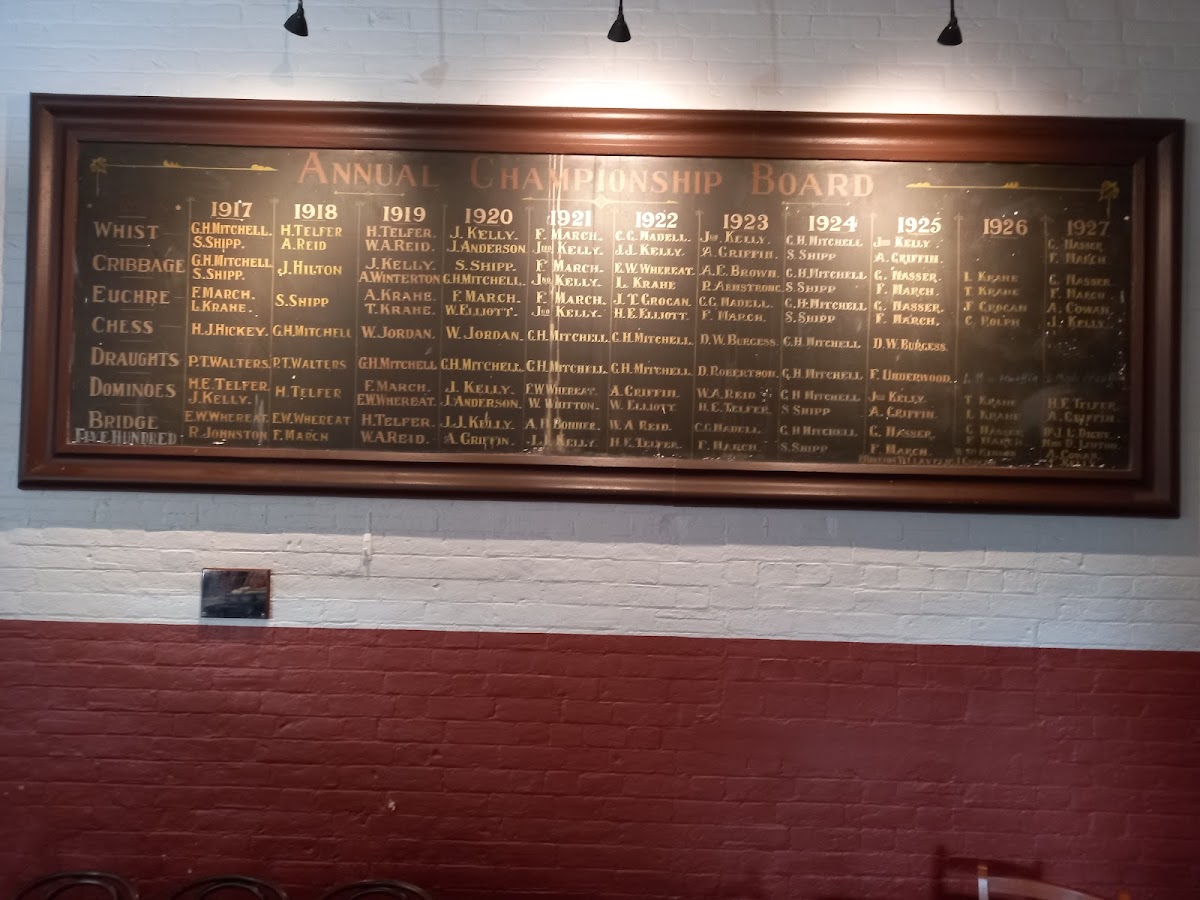 ANNUAL CHAMPIONSHIP BOARD
1917 1918 1919 1920 1921 1922 1923 1924 1925 1926 1927
WHIST G.H.MITCHELL. H.TELFER H.TELFER. J. KELLY. F. MARCH. C.G. NADELL. JNO KELLY. G.H.MITCHELL JNO KELLY. G. NASSER.
S.SHIPP. A.REID W.A.REID. J.ANDERSON JNO KELLY. J.J. KELLY. A. GRIFFIN. S.SHIPP A. GRIFFIN. F. MARCH
CRIBBAGE G.H.MITCHELL J.HILTON J.KELLY. S.SHIPP. F. MARCH. E.W.WHEREAT. A.E. BROWN. G.H.MITCHELL G. NASSER. L KRAHE G. NASSER.
S.SHIPP. A.WINTERTON G.H.MITCHELL. JNO KELLY. L. KRAHE R.ARMSTRONG. S.SHIPP F. MARCH. T KRAHE F. MARCH
EUCHRE F.MARCH. S.SHIPP A.KRAHE. F.MARCH. F. MARCH. J.T.GROGAN. C.G. NADELL. G.H.MITCHELL G. NASSER. J. GROGAN A. COWAN.
L.KRAHE. T.KRAHE. W.ELLIOTT. JNO KELLY. H.E.ELLIOTT. F. MARCH. S.SHIPP F. MARCH. C DOLPH J. KELLY.
CHESS H.J.HICKEY. G.H.MITCHELL W.JORDAN. W.JORDAN G.H.MITCHELL G.H.MITCHELL. D.W.BURGESS. G.H.MITCHELL D.W.BURGESS.
DRAUGHTS P.T.WALTERS. P.T.WALTERS G.H.MITCHELL G.H.MITCHELL. G.H.MITCHELL. G.H.MITCHELL. D.ROBERTSON. G.H.MITCHELL F. UNDERWOOD.
DOMINOES H.E.TELFER. H.TELFER F.MARCH. J. KELLY. E.W.WHEREAT. A.GRIFFIN. W.A.REID G.H.MITCHELL JNO KELLY. T KRAHE H.E.TELFER.
J.KELLY. E.W.WHEREAT. J.ANDERSON. W. WHITTON. W. ELLIOTT. H.E.TELFER. S.SHIPP A. GRIFFIN. L KRAHE A. GRIFFIN.
BRIDGE E.W.WHEREAT E.W.WHEREAT H.TELFER. J.J.KELLY. W.A. REID. C.G.NADELL. G.H.MITCHELL G. NASSER. G NASSER
FIVE HUNDRED R.JOHNSTON F.MARCH W.A.REID. A. GRIFFIN. KELLY. H.E.TELFER. F. MARCH. S.SHIPP F. MARCH. F MARCH